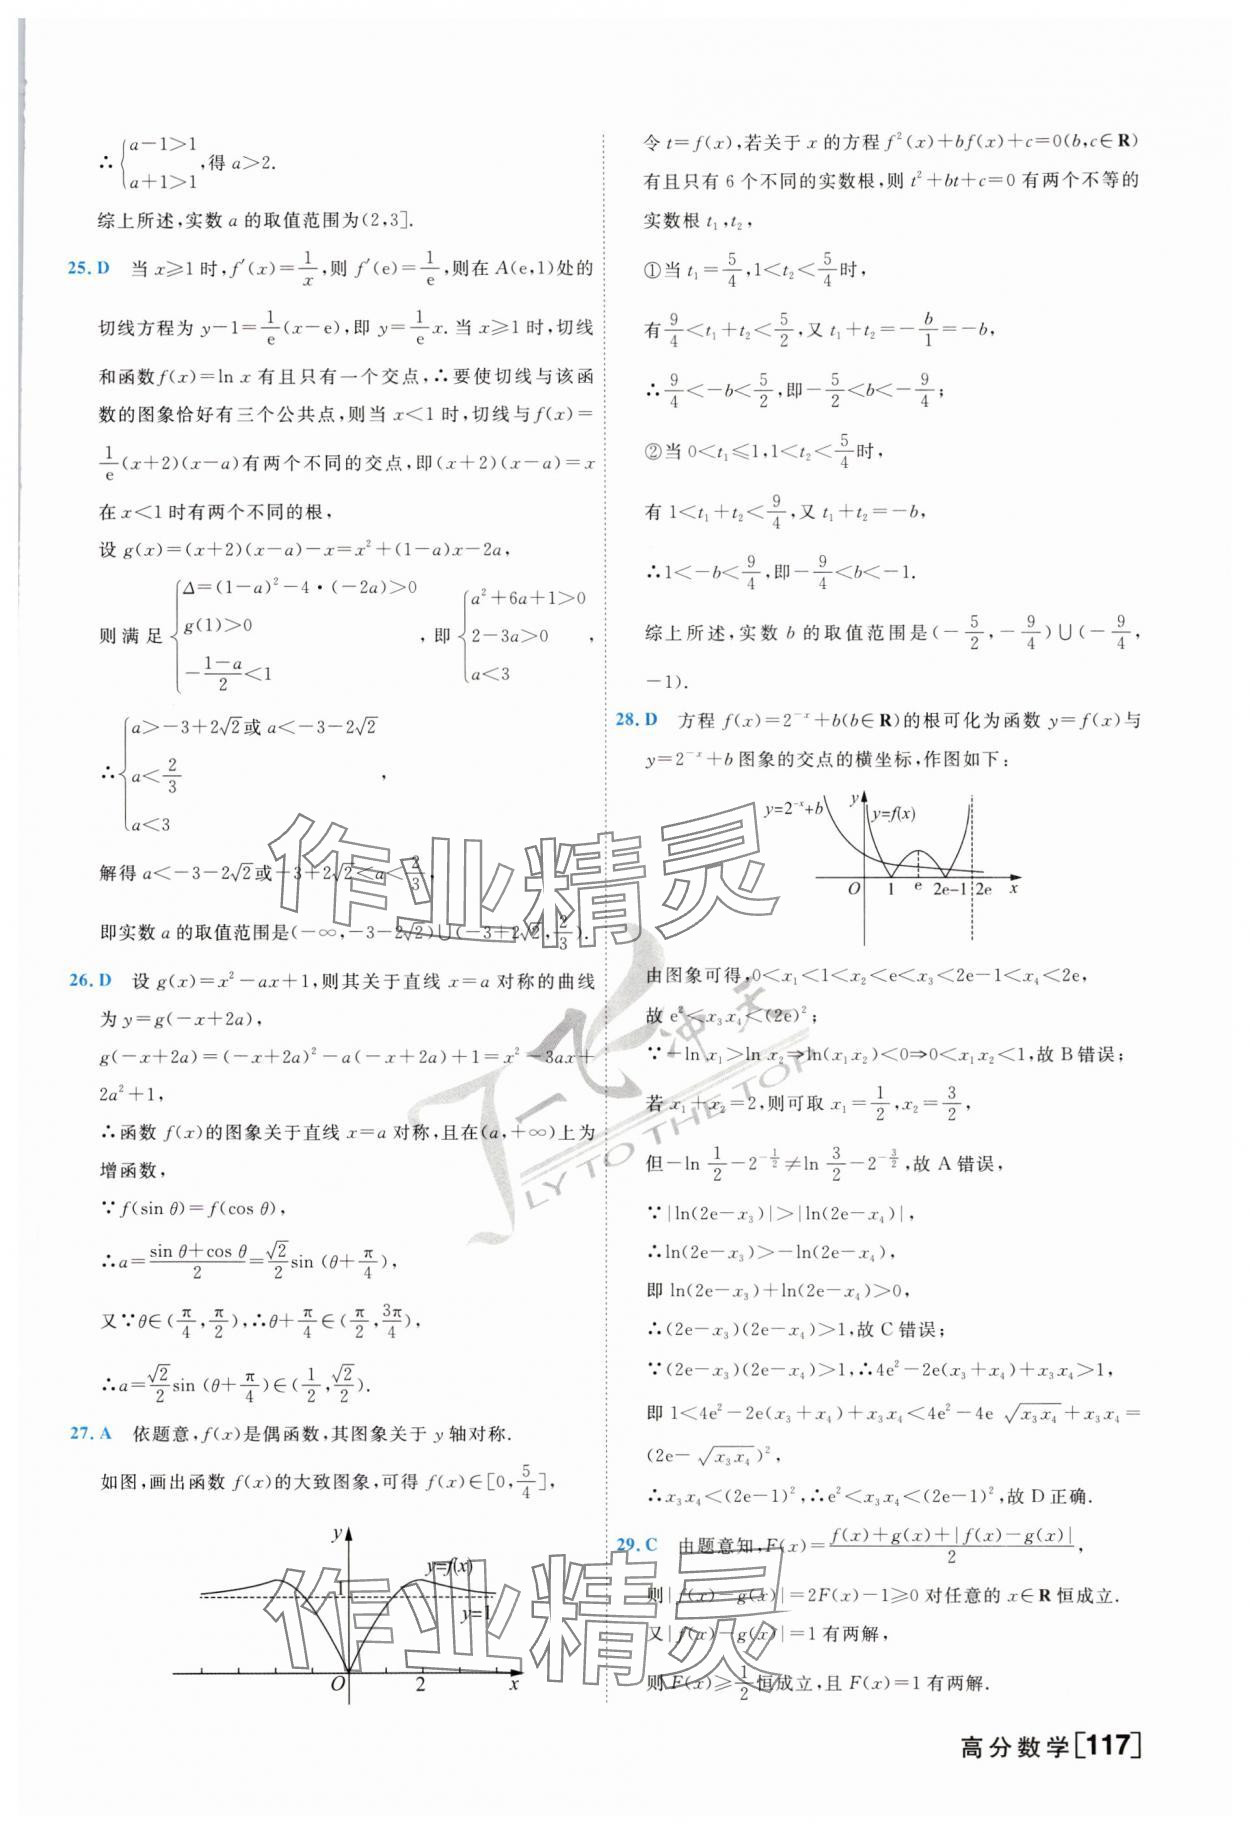 ∴{a-1>1 a+1>1,得 a>2.
综上所述,实数 a 的取值范围为(2,3].
25. D 当 x≥1 时,f′(x)=1/x,则 f′(e)=1/e,则在 A(e,1)处的
切线方程为 y-1=1/e(x-e),即 y=1/e x. 当 x≥1 时,切线
和函数f(x)=ln x 有且只有一个交点,∴要使切线与该函
数的图象恰好有三个公共点,则当 x<1 时,切线与f(x)=
1/e(x+2)(x-a)有两个不同的交点,即(x+2)(x-a)=x
在 x<1 时有两个不同的根,
设 g(x)=(x+2)(x-a)-x=x²+(1-a)x-2a,
则满足{Δ=(1-a)²-4·(-2a)>0 g(1)>0 -(1-a)/2<1,即{a²+6a+1>0 2-3a>0 a<3,
∴{a>-3+2√2或 a<-3-2√2 a<2/3 a<3,
解得 a<-3-2√2或-3+2√2<a<2/3,
即实数 a 的取值范围是(-∞,-3-2√2)∪(-3+2√2,2/3).
26. D 设 g(x)=x²-ax+1,则其关于直线 x=a 对称的曲线
为 y=g(-x+2a),
g(-x+2a)=(-x+2a)²-a(-x+2a)+1=x²-3ax+
2a²+1,
∴函数 f(x)的图象关于直线 x=a 对称,且在(a,+∞)上为
增函数,
∵f(sin θ)=f(cos θ),
∴a=(sin θ+cos θ)/2=√2/2 sin (θ+π/4),
又∵θ∈(π/4,π/2),∴θ+π/4∈(π/2,3π/4),
∴a=√2/2 sin (θ+π/4)∈(1/2,√2/2).
27. A 依题意,f(x)是偶函数,其图象关于 y 轴对称.
如图,画出函数 f(x)的大致图象,可得 f(x)∈[0,5/4],
y
y=f(x)
1
y=1
O 2 x
令 t=f(x),若关于 x 的方程 f²(x)+bf(x)+c=0(b,c∈R)
有且只有 6 个不同的实数根,则 t²+bt+c=0 有两个不等的
实数根 t₁,t₂,
①当 t₁=5/4,1<t₂<5/4时,
有9/4<t₁+t₂<5/2,又 t₁+t₂=-b/1=-b,
∴9/4<-b<5/2,即-5/2<b<-9/4;
②当 0<t₁≤1,1<t₂<5/4时,
有 1<t₁+t₂<9/4,又 t₁+t₂=-b,
∴1<-b<9/4,即-9/4<b<-1.
综上所述,实数 b 的取值范围是(-5/2,-9/4)∪(-9/4,
-1).
28. D 方程 f(x)=2⁻ˣ+b(b∈R)的根可化为函数 y=f(x)与
y=2⁻ˣ+b 图象的交点的横坐标,作图如下:
y=2⁻ˣ+b y y=f(x)
O 1 e 2e-1 2e x
由图象可得,0<x₁<1<x₂<e<x₃<2e-1<x₄<2e,
故 e²<x₃x₄<(2e)²;
∵-ln x₁>ln x₂⇒ln(x₁x₂)<0⇒0<x₁x₂<1,故 B错误;
若 x₁+x₂=2,则可取 x₁=1/2,x₂=3/2,
但-ln 1/2-2^(-1/2)≠ln 3/2-2^(-3/2),故 A 错误,
∵|ln(2e-x₃)|>|ln(2e-x₄)|,
∴ln(2e-x₃)>-ln(2e-x₄),
即 ln(2e-x₃)+ln(2e-x₄)>0,
∴(2e-x₃)(2e-x₄)>1,故 C 错误;
∵(2e-x₃)(2e-x₄)>1,∴4e²-2e(x₃+x₄)+x₃x₄>1,
即 1<4e²-2e(x₃+x₄)+x₃x₄<4e²-4e √x₃x₄+x₃x₄=
(2e-√x₃x₄)²,
∴x₃x₄<(2e-1)²,∴e²<x₃x₄<(2e-1)²,故 D 正确.
29. C 由题意知,F(x)=(f(x)+g(x)+|f(x)-g(x)|)/2,
则|f(x)-g(x)|=2F(x)-1≥0 对任意的 x∈R 恒成立.
又|f(x)-g(x)|=1 有两解,
则 F(x)≥1/2恒成立,且 F(x)=1 有两解.
高分数学[117]
作业精灵
一飞冲天
FLY TO THE TOP
作业精灵